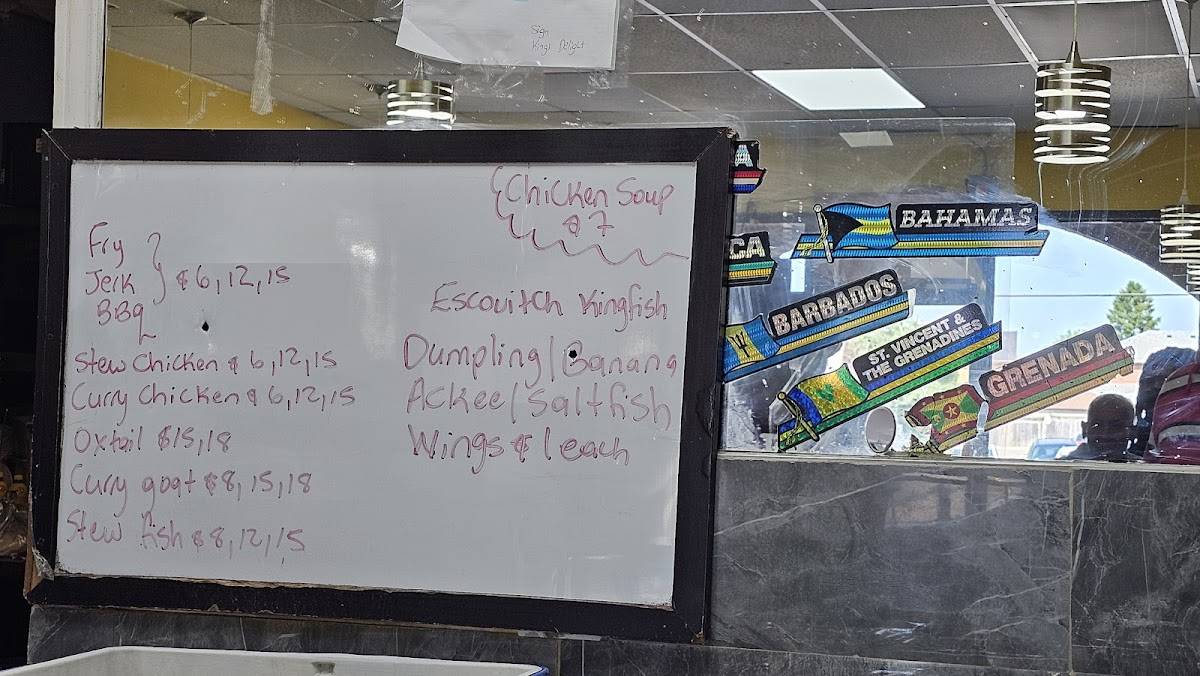 Sign
King's Delight
Chicken Soup
$7
Fry
Jerk $6,12,15
BBQ
Stew Chicken $6,12,15
Curry Chicken $6,12,15
Oxtail $15,18
Curry goat $8,15,18
Stew fish $8,12,15
Escovitch Kingfish
Dumpling/Banana
Ackee/Saltfish
Wings $1 each
A
CA
BAHAMAS
BARBADOS
ST. VINCENT &
THE GRENADINES
GRENADA